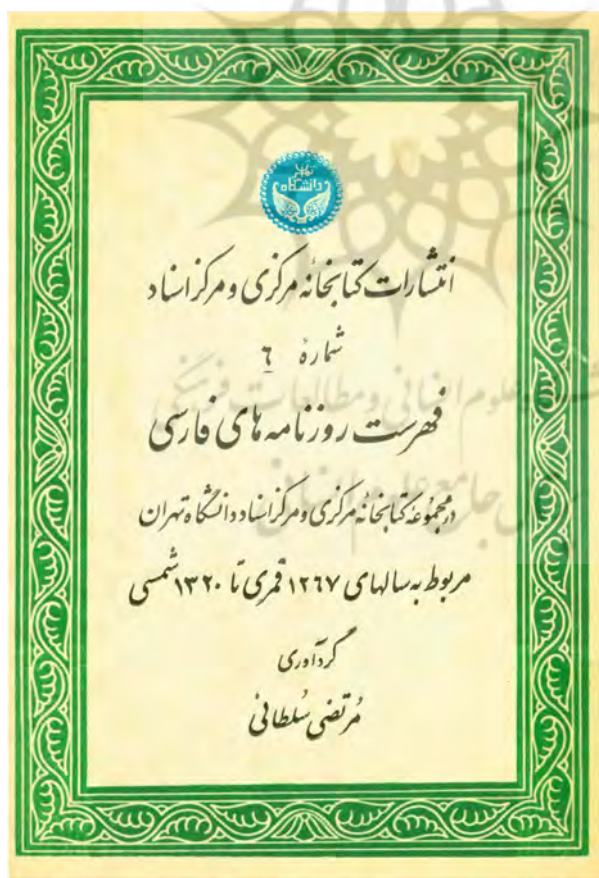 دانشگاه تهران
انتشارات کتابخانهٔ مرکزی و مرکز اسناد
شمارهٔ ٦
فهرست روزنامه‌های فارسی
در مجموعهٔ کتابخانهٔ مرکزی و مرکز اسناد دانشگاه تهران
مربوط به سالهای ۱۲٦۷ قمری تا ۱۳۲۰ شمسی
گردآوری
مُرتضی سُلطانی
علوم انسانی و مطالعات فرهنگی
جامع علوم انسانی